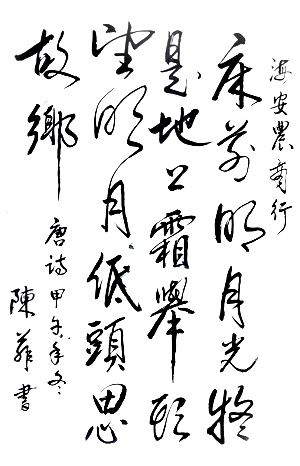 海安農商行
床前明月光疑
是地上霜舉頭
望明月低頭思
故鄉
唐詩甲午年冬
陳書